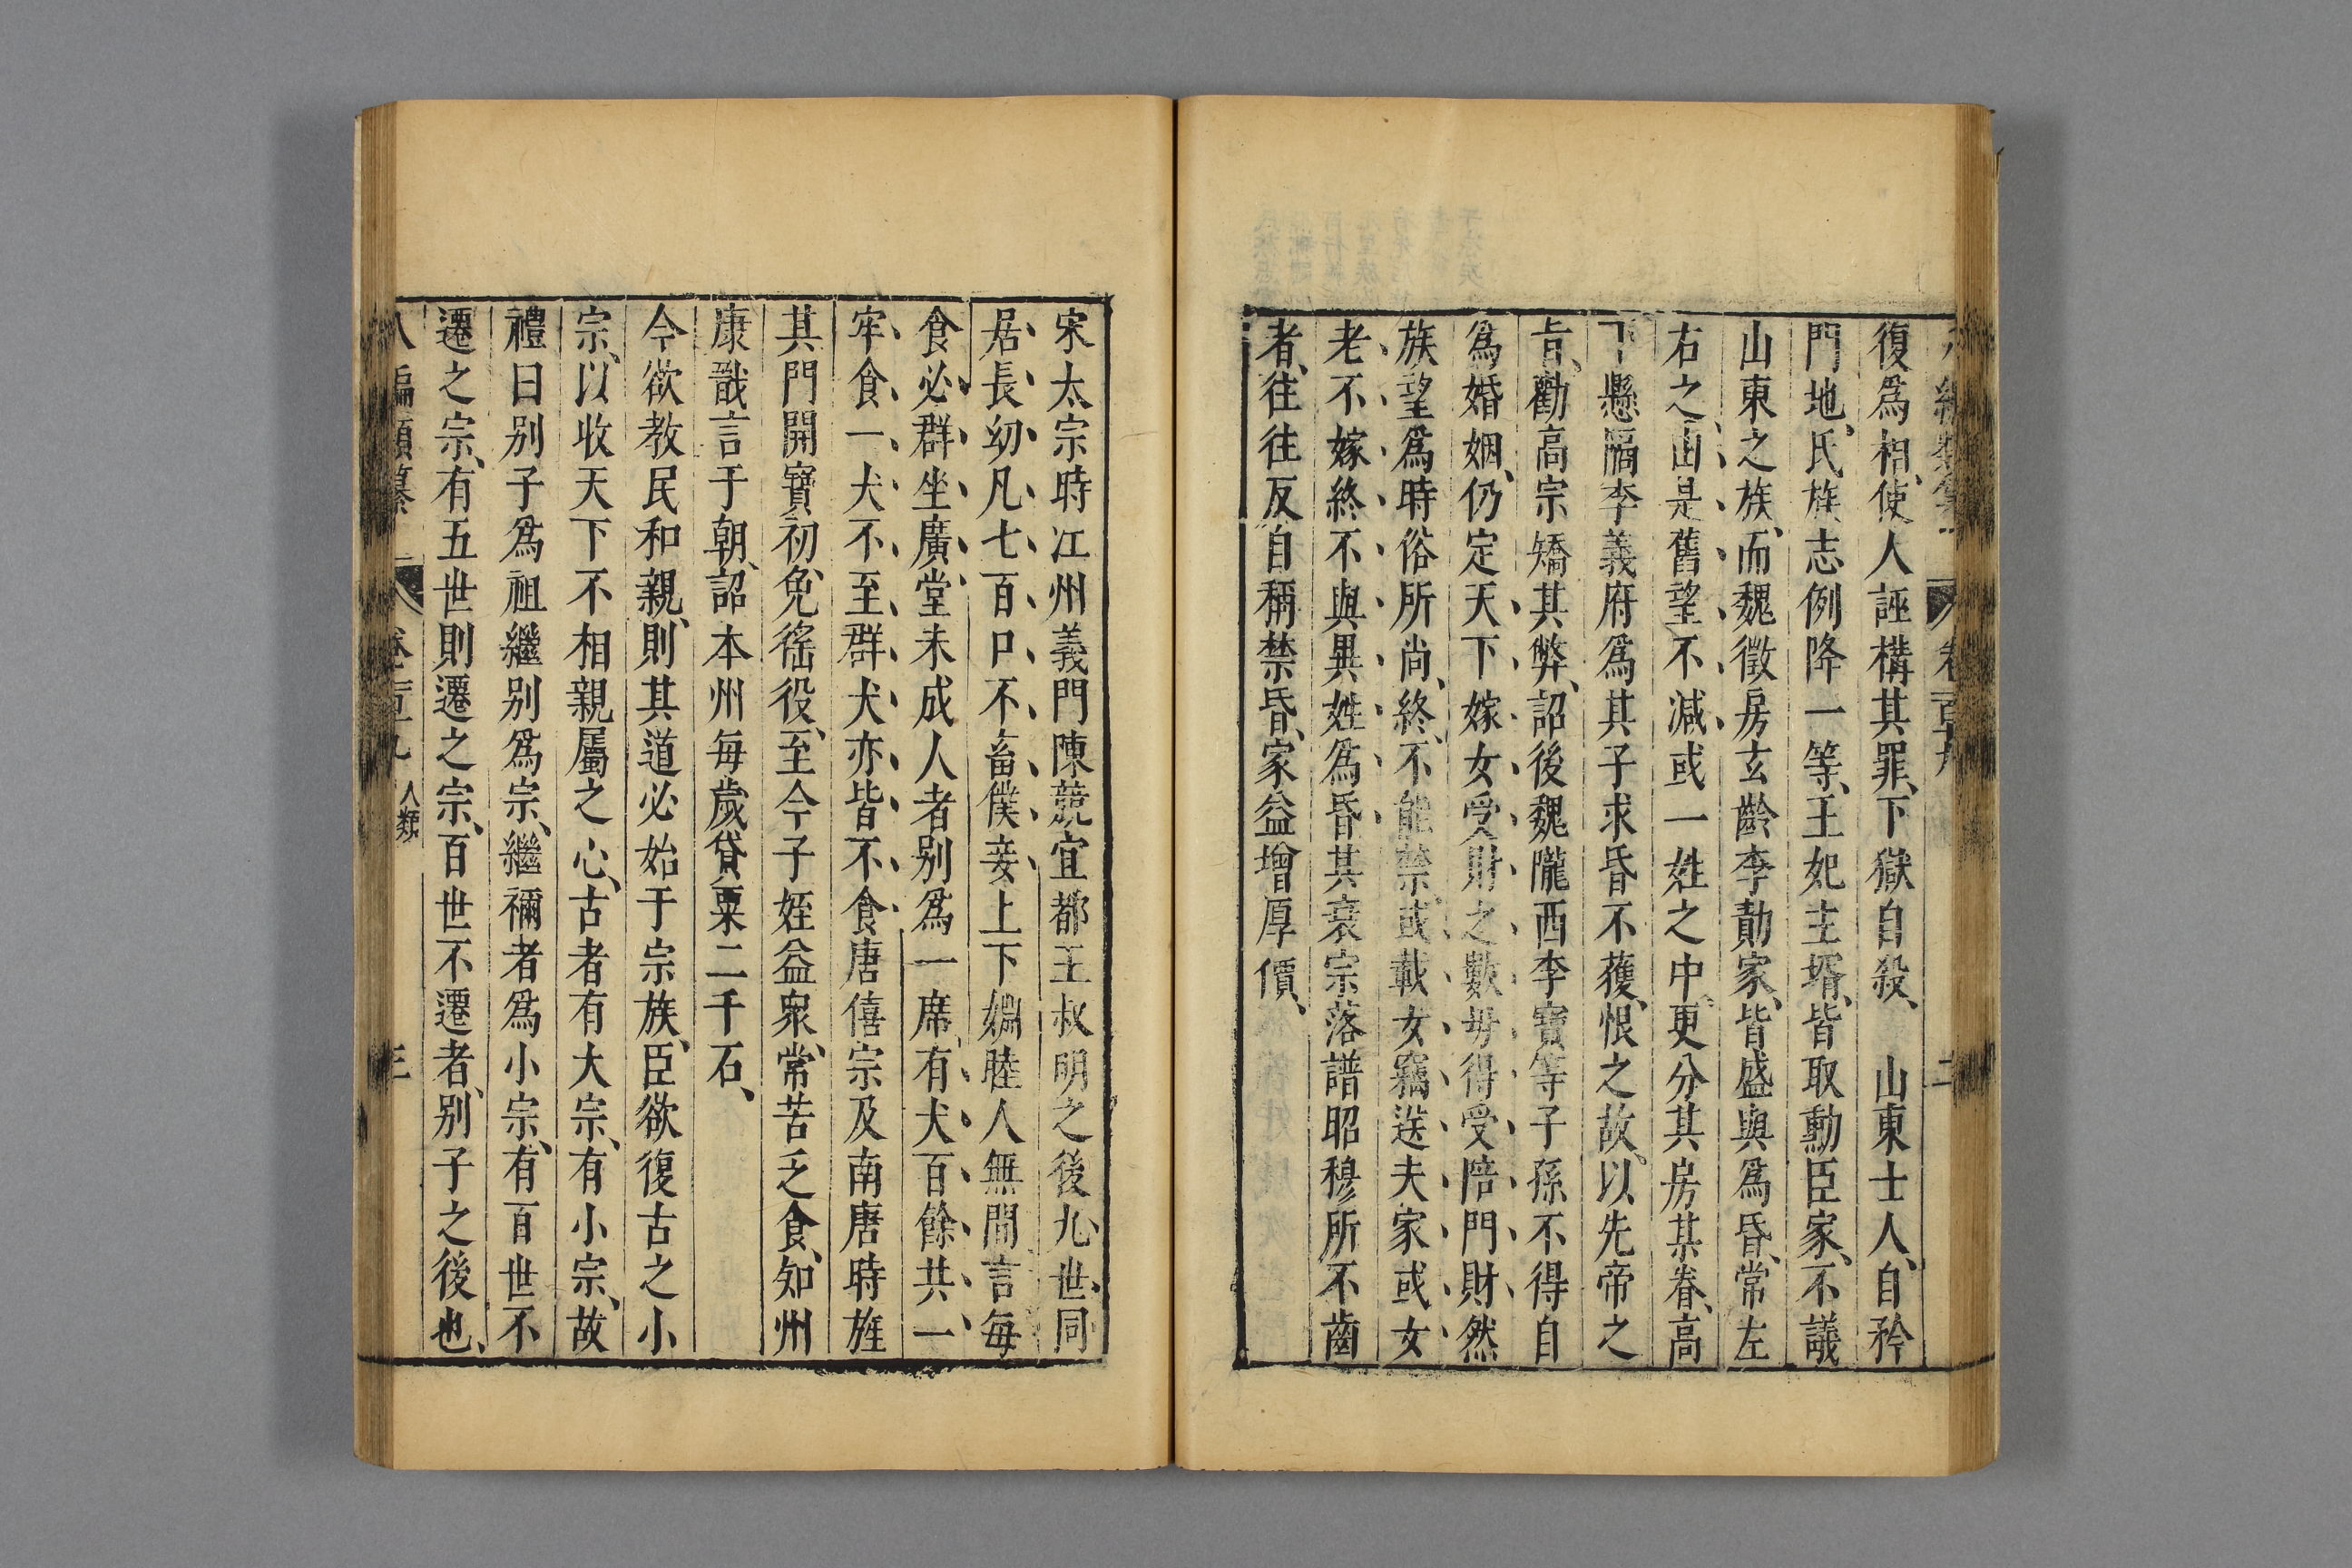 復爲相、使人誣構其罪、下獄自殺、　山東士人、自矜
門地、氏族志例降一等、王妃主壻、皆取勳臣家、不議
山東之族、而魏徵房玄齡李勣家、皆盛與爲昏、常左
右之、由是舊望不減、或一姓之中、更分其房某眷、高
下懸隔李義府爲其子求昏不獲、恨之故、以先帝之
旨、勸高宗矯其弊、詔後魏隴西李寶等子孫不得自
爲婚姻、仍定天下嫁女受財之數、毋得受陪門財、然
族望爲時俗所尚、終不能禁、或載女竊送夫家、或女
老不嫁、終不與異姓爲昏、其衰宗落譜昭穆所不齒
者、往往反自稱禁昏、家益增厚價、
宋太宗時江州義門陳兢宜都王叔明之後、九世同
居、長幼凡七百口、不畜僕妾、上下姻睦、人無間言、每
食必群坐廣堂、未成人者别爲一席、有犬百餘、共一
牢食、一犬不至、群犬亦皆不食、唐僖宗及南唐時旌
其門、開寶初、免徭役、至今子姪益衆、常苦乏食、知州
康戩言于朝、詔本州每歲貸粟二千石、
今欲教民和親、則其道必始于宗族、臣欲復古之小
宗、以收天下不相親屬之心、古者有大宗、有小宗、故
禮曰别子爲祖繼别爲宗、繼禰者爲小宗、有百世不
遷之宗、有五世則遷之宗、百世不遷者、别子之後也、
八編類纂　卷　人類　三